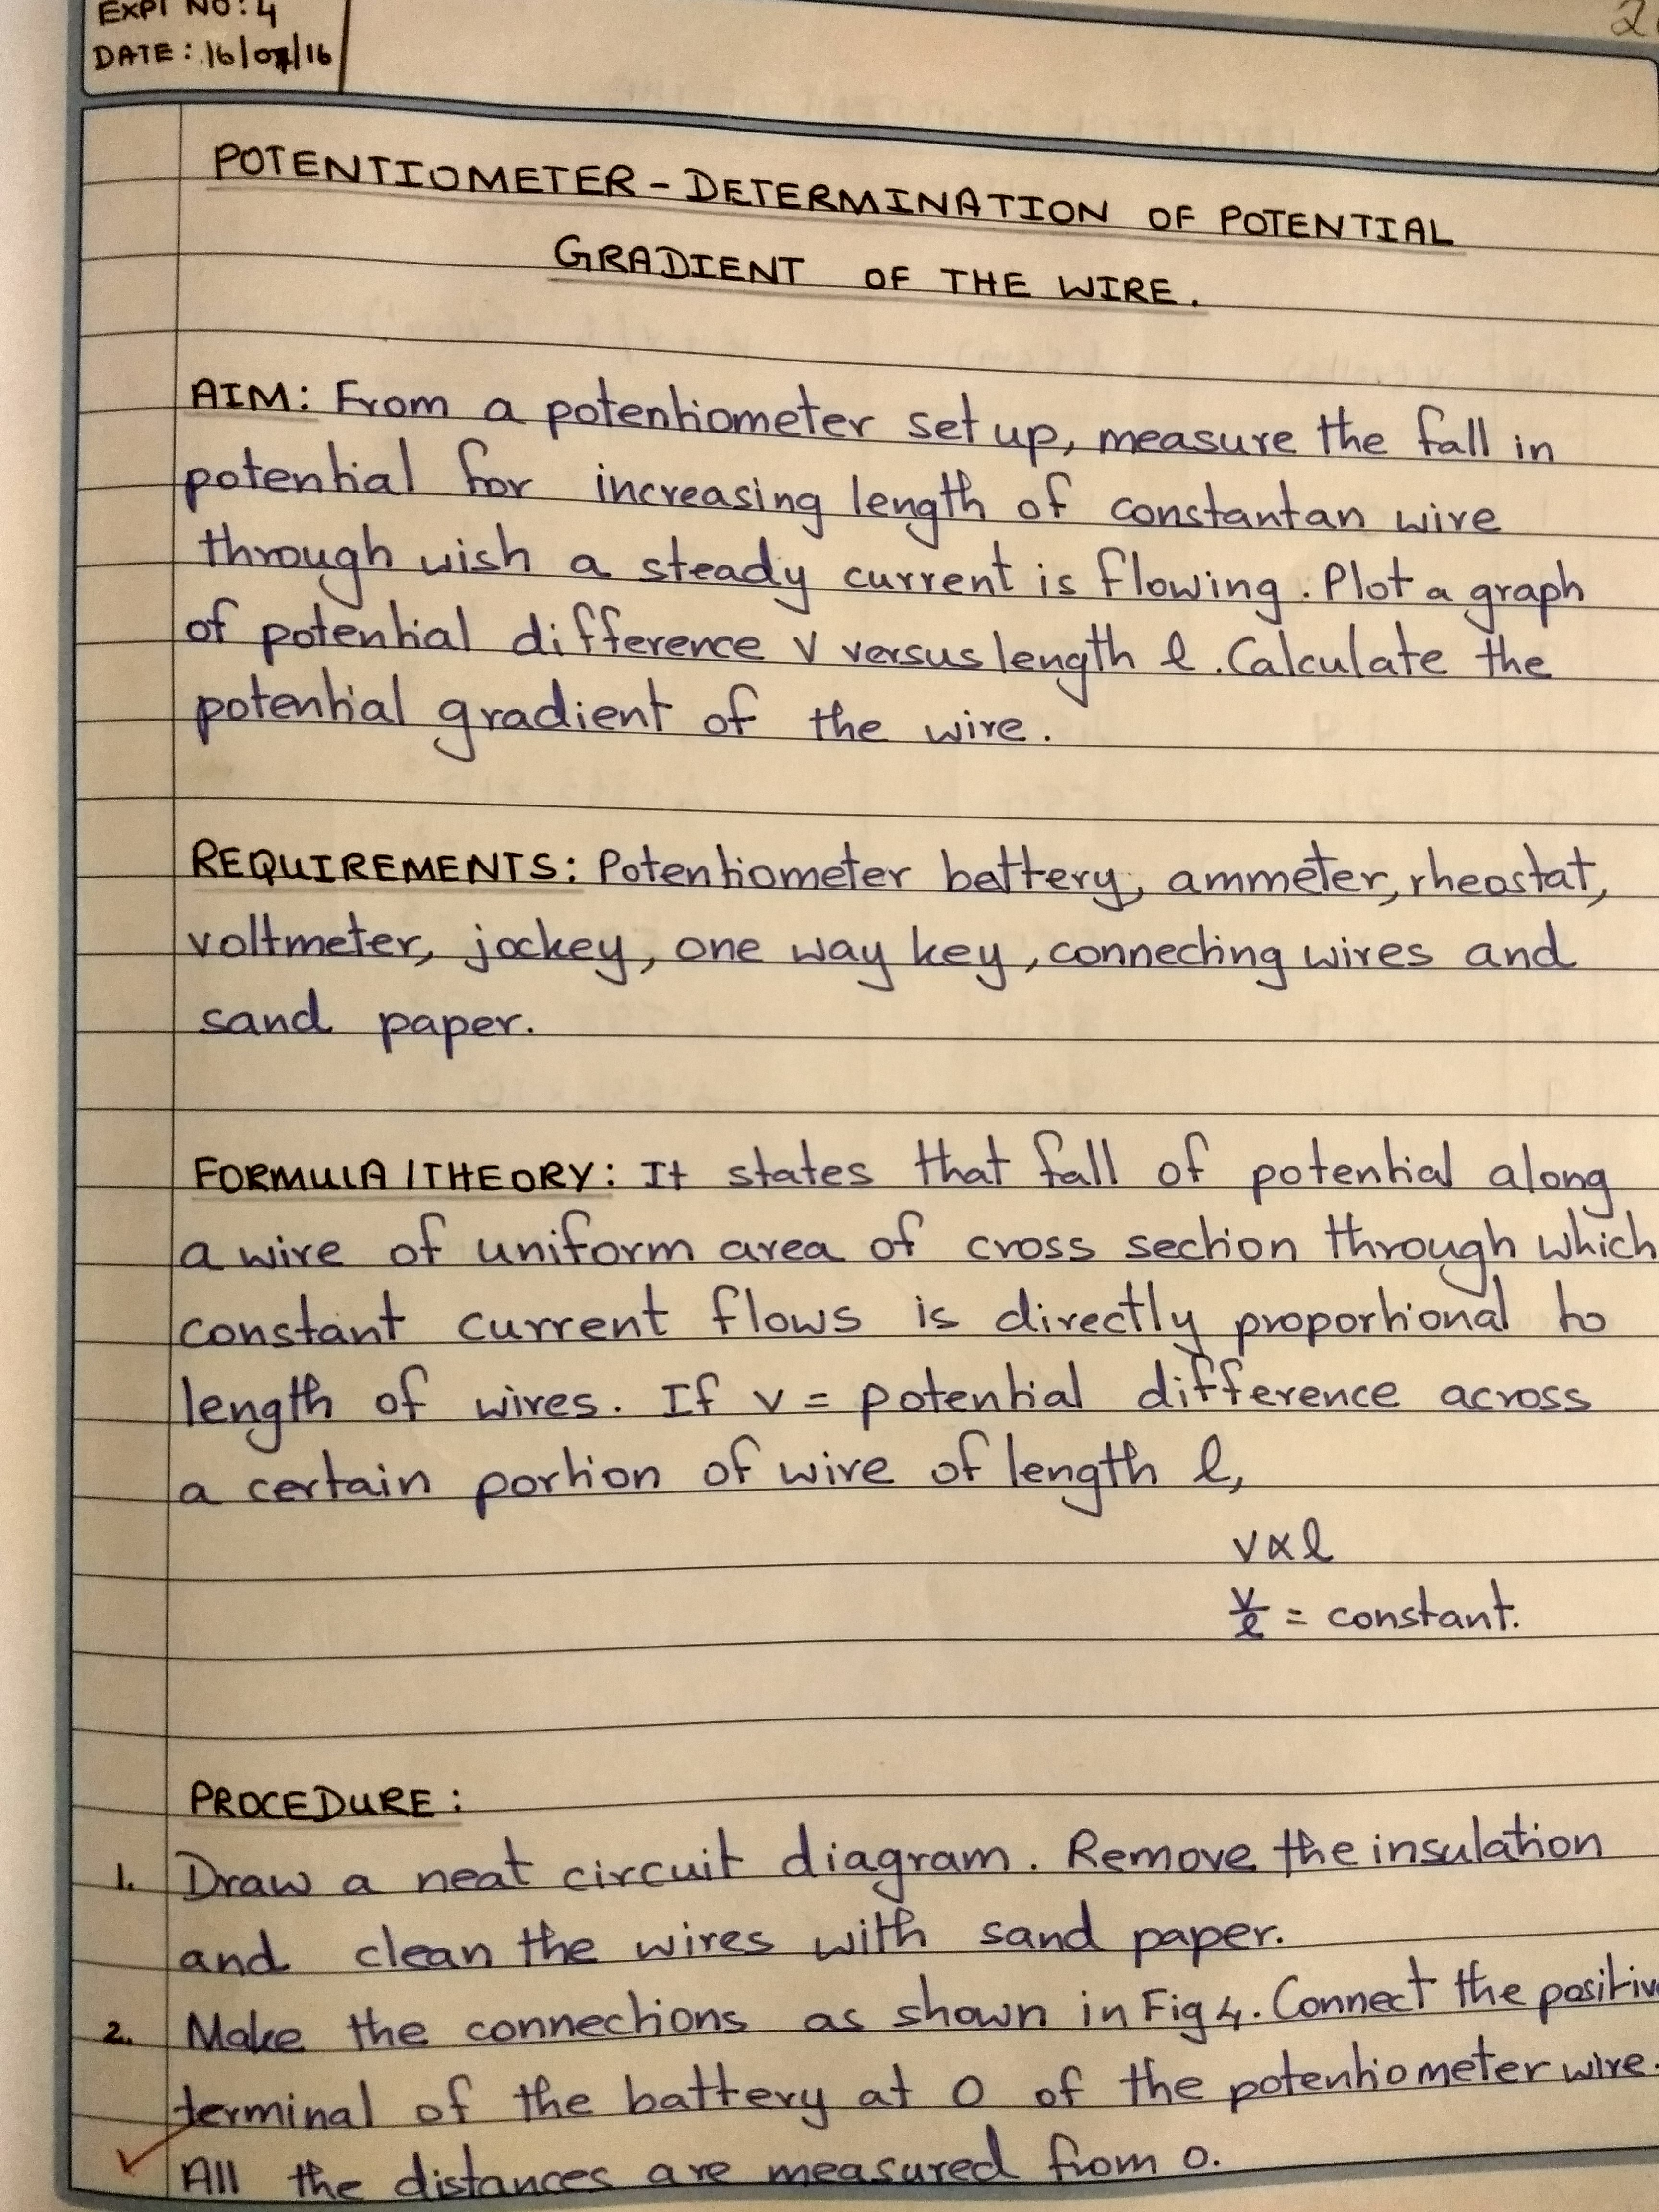 EXPT NO: 4
DATE: 16/07/16
POTENTIOMETER - DETERMINATION OF POTENTIAL
GRADIENT OF THE WIRE.
AIM: From a potentiometer set up, measure the fall in
potential for increasing length of constantan wire
through wish a steady current is flowing. Plot a graph
of potential difference V versus length l. Calculate the
potential gradient of the wire.
REQUIREMENTS: Potentiometer battery, ammeter, rheostat,
voltmeter, jockey, one way key, connecting wires and
sand paper.
FORMULA / THEORY: It states that fall of potential along
a wire of uniform area of cross section through which
constant current flows is directly proportional to
length of wires. If v = potential difference across
a certain portion of wire of length l,
v ∝ l
v/l = constant.
PROCEDURE:
1. Draw a neat circuit diagram. Remove the insulation
and clean the wires with sand paper.
2. Make the connections as shown in Fig 4. Connect the positive
terminal of the battery at 0 of the potentiometer wire.
All the distances are measured from 0.